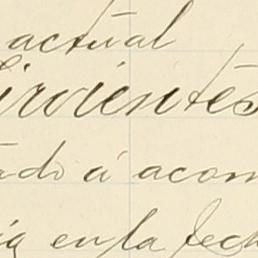 actual
sirvientes
ado á acom
ia en la fech